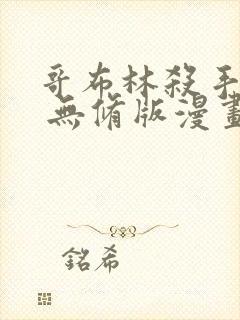 哥布林殺手
無脩版漫畫
銘希